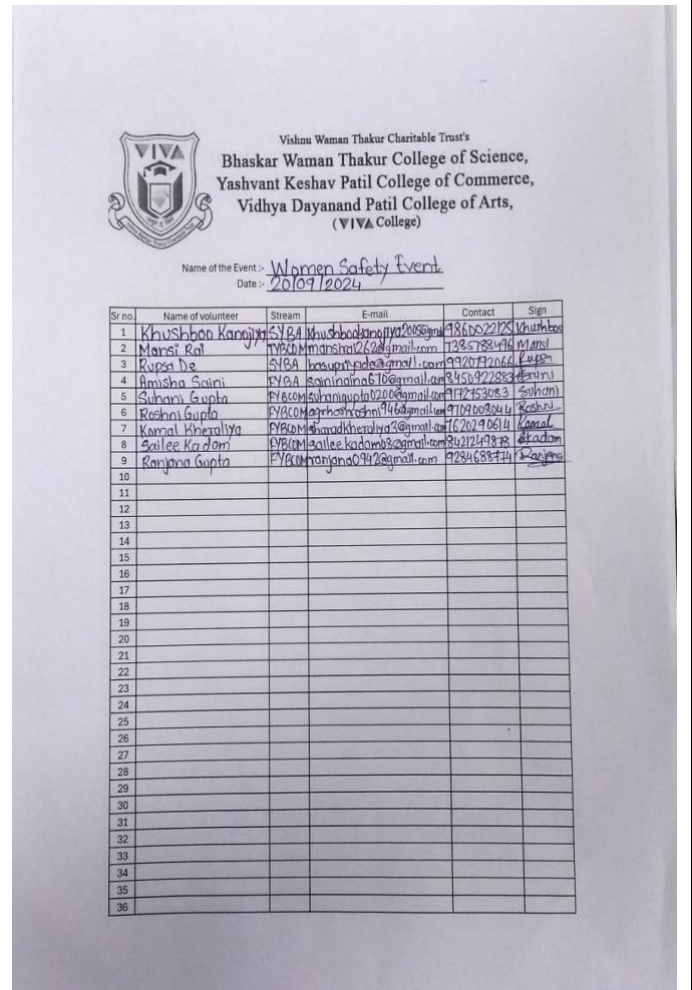 VIVA
Vishnu Waman Thakur Charitable Trust's
Bhaskar Waman Thakur College of Science,
Yashvant Keshav Patil College of Commerce,
Vidhya Dayanand Patil College of Arts,
(VIVA College)
Name of the Event :- Women Safety Event
Date :- 20/09/2024
Sr no. Name of volunteer Stream E-mail Contact Sign
1 Khushboo Kanojiya SYBA Khushbookanojiya2005@gmail 9860022125 Khushboo
2 Mansi Rai TYBCOM manshrai262@gmail.com 7385788496 Mansi
3 Rupsa De SYBA basupriyade@gmail.com 9920792066 Rupsa
4 Amisha Saini FYBA saininaina610@gmail.com 8450922883
5 Suhani Gupta FYBCOM suhanigupta0200@gmail.com 9172753083 Suhani
6 Roshni Gupta FYBCOM 9109008044 Roshni
7 Komal Kheraliya FYBCOM sharadkheraliya3@gmail.com 7620290614 Komal
8 Sailee Kadam FYBCOM sailee.kadam08@gmail.com 8421249878 Skadam
9 Ranjana Gupta FYBCOM ranjana0942@gmail.com 9284688774 Ranjana
10
11
12
13
14
15
16
17
18
19
20
21
22
23
24
25
26
27
28
29
30
31
32
33
34
35
36